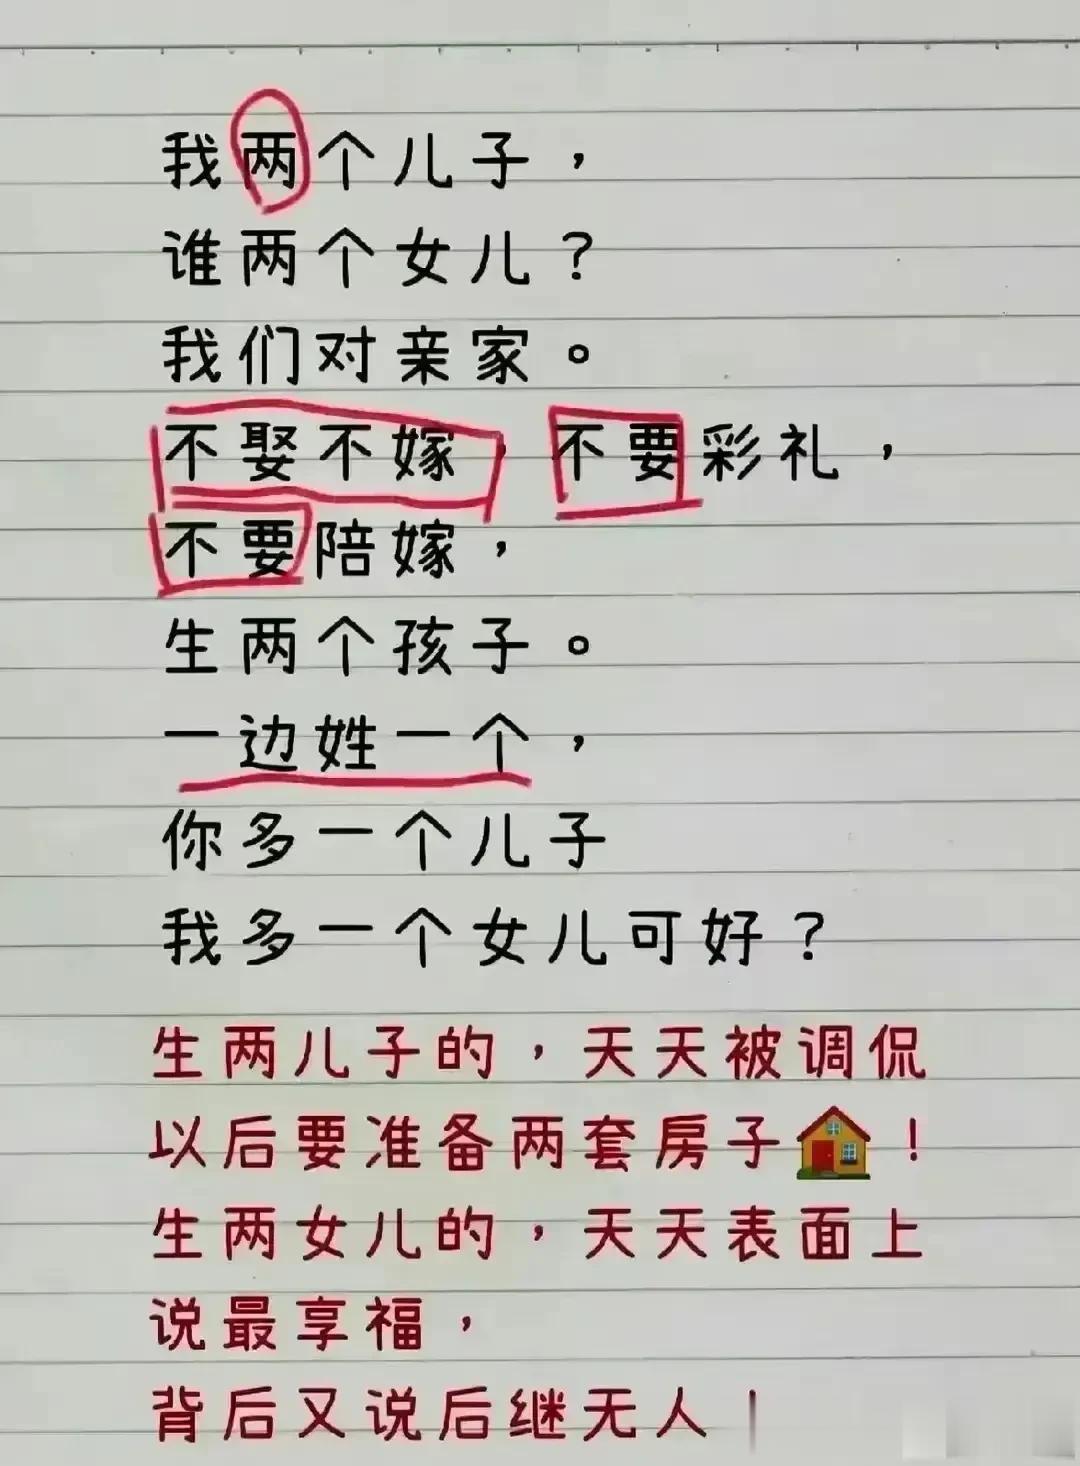 我两个儿子，
谁两个女儿？
我们对亲家。
不娶不嫁，不要彩礼，
不要陪嫁，
生两个孩子。
一边姓一个，
你多一个儿子
我多一个女儿可好？
生两儿子的，天天被调侃
以后要准备两套房子🏠！
生两女儿的，天天表面上
说最享福，
背后又说后继无人！